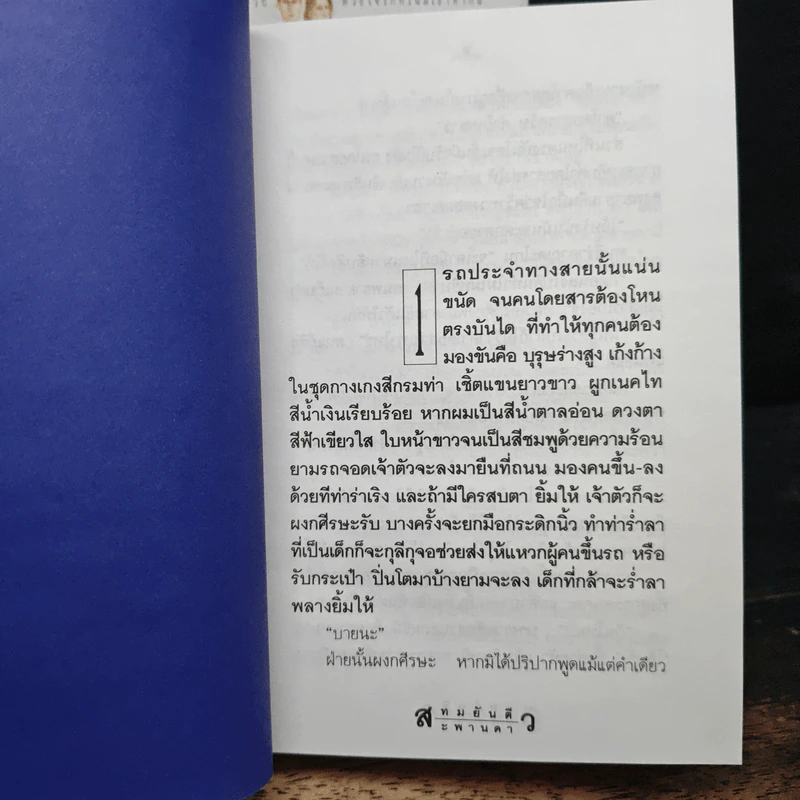 รถประจำทางสายนั้นแน่น
ขนัด จนคนโดยสารต้องโหน
ตรงบันได ที่ทำให้ทุกคนต้อง
1 มองขันคือ บุรุษร่างสูง เก้งก้าง
ในชุดกางเกงสีกรมท่า เชิ้ตแขนยาวขาว ผูกเนคไท
สีน้ำเงินเรียบร้อย หากผมเป็นสีน้ำตาลอ่อน ดวงตา
สีฟ้าเขียวใส ใบหน้าขาวจนเป็นสีชมพูด้วยความร้อน
ยามรถจอดเจ้าตัวจะลงมายืนที่ถนน มองคนขึ้น-ลง
ด้วยทีท่าร่าเริง และถ้ามีใครสบตา ยิ้มให้ เจ้าตัวก็จะ
ผงกศีรษะรับ บางครั้งจะยกมือกระดิกนิ้ว ทำท่าร่ำลา
ที่เป็นเด็กก็จะกุลีกุจอช่วยส่งให้แหวกผู้คนขึ้นรถ หรือ
รับกระเป๋า ปิ่นโตมาบ้างยามจะลง เด็กที่กล้าจะร่ำลา
พลางยิ้มให้
“บายนะ”
ฝ่ายนั้นผงกศีรษะ หากมิได้ปริปากพูดแม้แต่คำเดียว
ทมยันตี
สะพานดาว